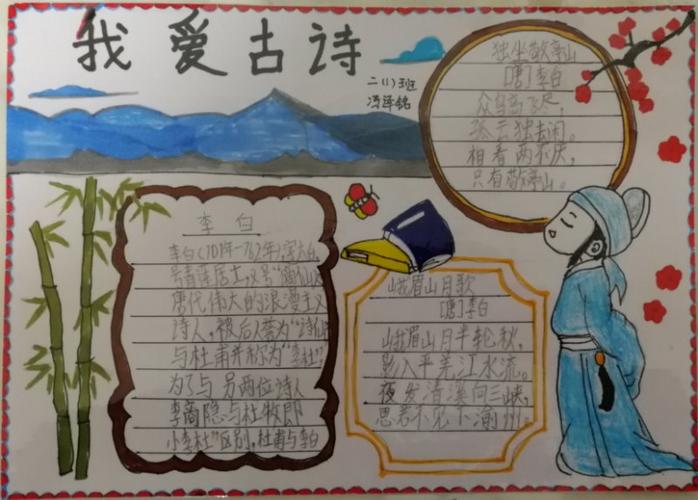 我爱古诗
二(1)班
冯泽铭
独坐敬亭山
[唐]李白
众鸟高飞尽,
孤云独去闲。
相看两不厌,
只有敬亭山。
李白
李白(701年-762年),字太白,
号青莲居士,又号"谪仙人"
唐代伟大的浪漫主义
诗人,被后人誉为"诗仙"
与杜甫并称为"李杜"
为了与另两位诗人
李商隐与杜牧即
小李杜"区别,杜甫与李白
峨眉山月歌
[唐]李白
峨眉山月半轮秋,
影入平羌江水流。
夜发清溪向三峡,
思君不见下渝州。